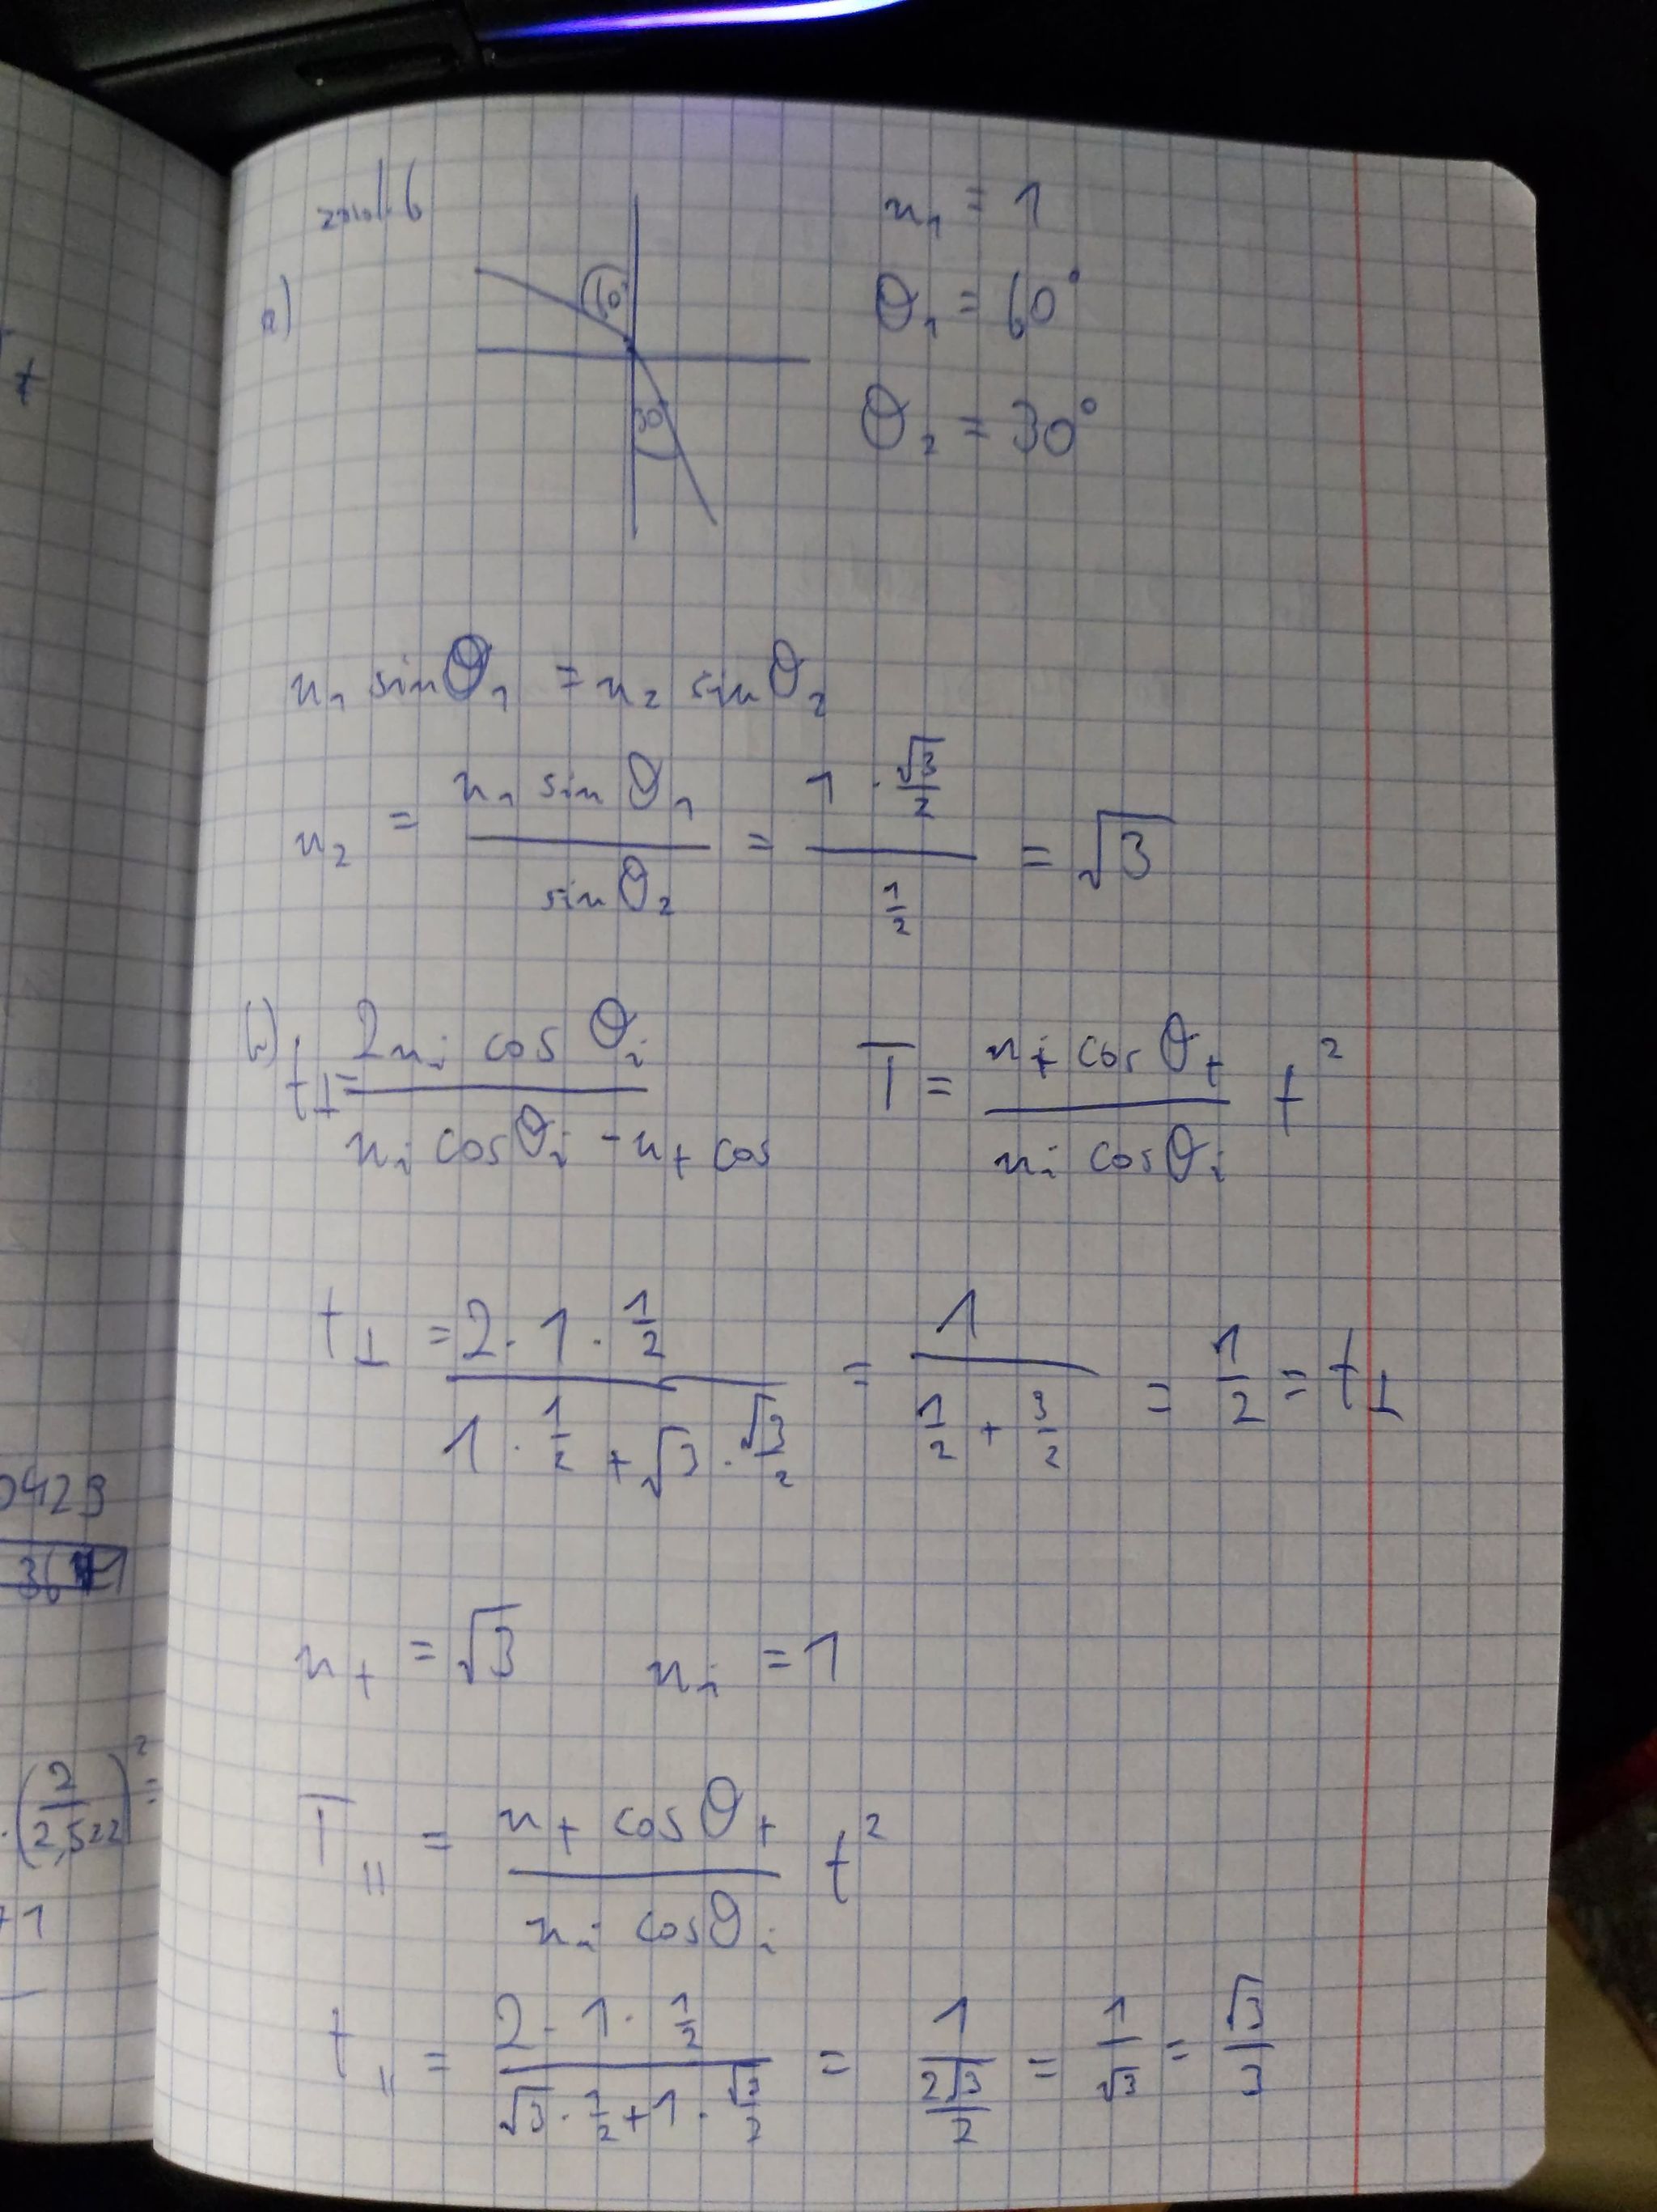 zad. 6
n₁ = 1
a)
60°
θ₁ = 60°
30
θ₂ = 30°
n₁ sinθ₁ = n₂ sinθ₂
n₂ = (n₁ sin θ₁)/(sin θ₂) = (1 · √3/2)/(1/2) = √3
b) t⊥ = (2nᵢ cos θᵢ)/(nᵢ cosθᵢ - nₜ cos T = (nₜ cos θₜ)/(nᵢ cosθᵢ) t²
t⊥ = (2 · 1 · 1/2)/(1 · 1/2 + √3 · √3/2) = 1/(1/2 + 3/2) = 1/2 = t⊥
nₜ = √3 nᵢ = 1
T∥ = (nₜ cosθₜ)/(nᵢ cosθᵢ) t²
t∥ = (2 · 1 · 1/2)/(√3 · 1/2 + 1 · √3/2) = 1/(2√3/2) = 1/√3 = √3/3
t
0429
· (2/2,522)² =
+1